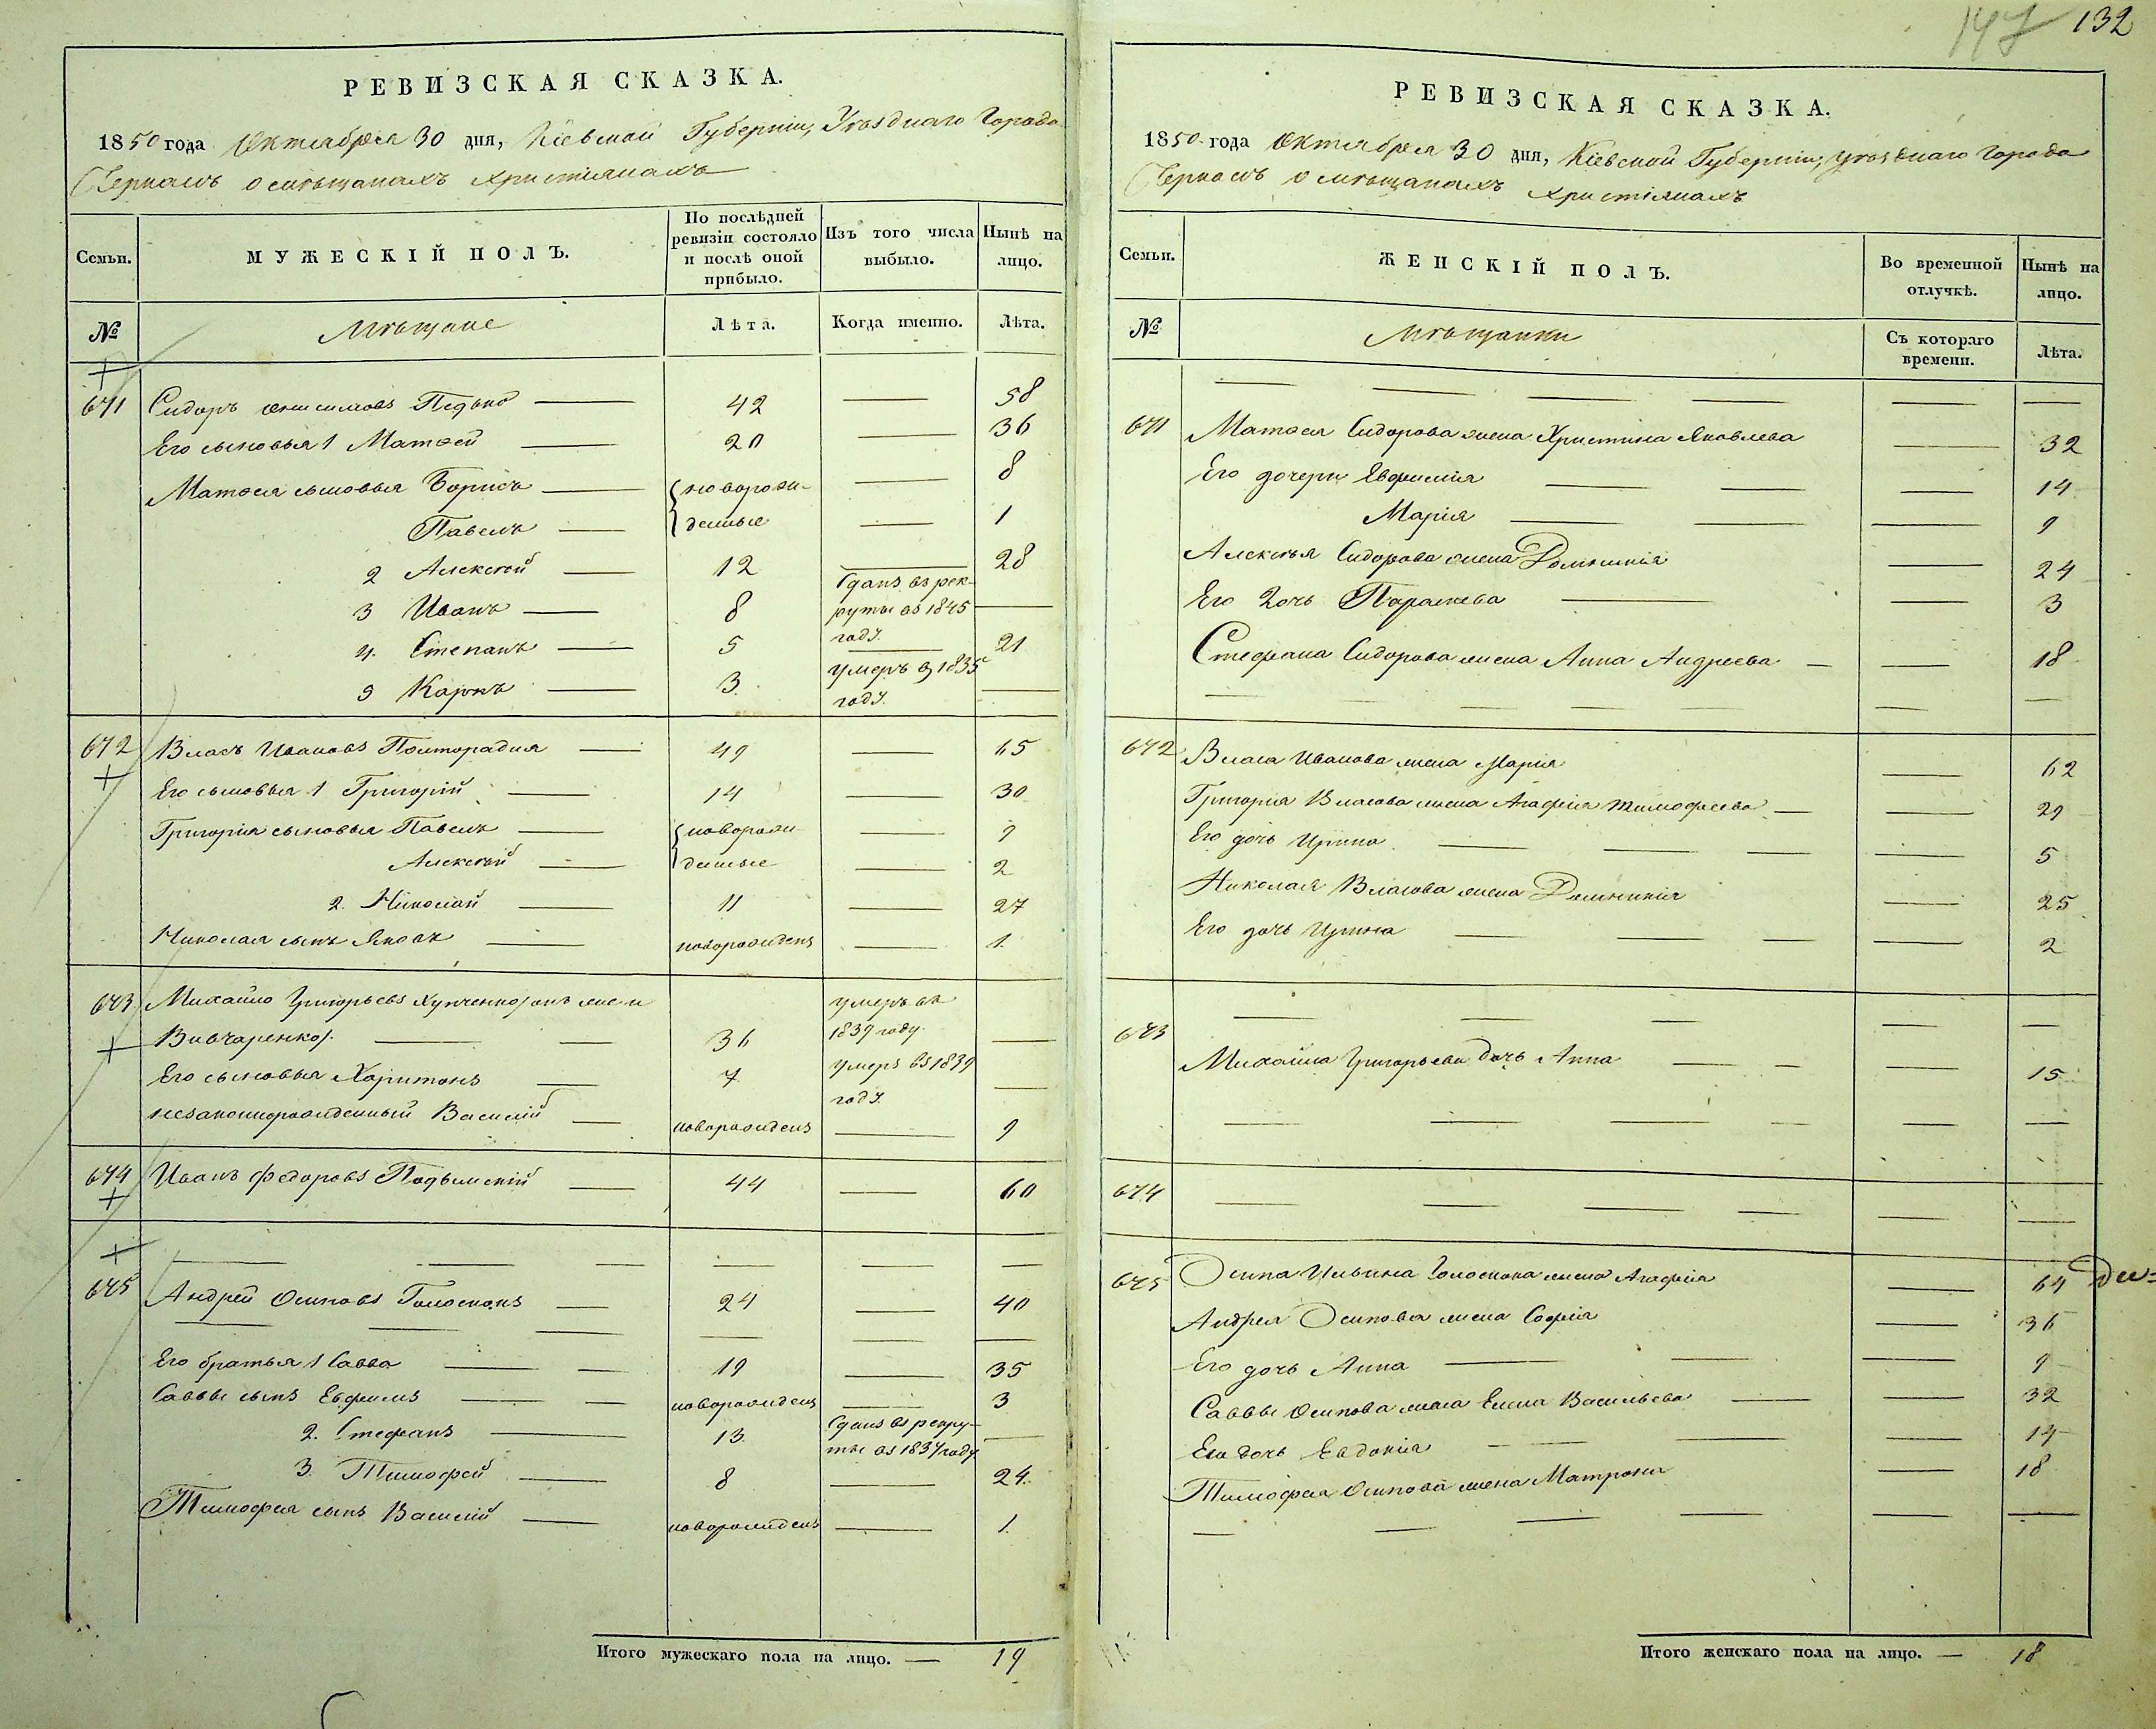 147 132
РЕВИЗСКАЯ СКАЗКА.
1850 года Октября 30 дня, Кіевской Губерніи, Уѣзднаго Города
Черкасъ о мѣщанахъ христіянахъ
Семьи.
МУЖЕСКІЙ ПОЛЪ.
По послѣдней ревизіи состояло и послѣ оной прибыло.
Изъ того числа выбыло.
Нынѣ на лицо.
№
Мѣщане
Лѣта.
Когда именно.
Лѣта.
671 Сидоръ Онисимовъ 42 — 58
Его сыновья 1 Матвей — 20 — 36
Матвея сыновья Борисъ — новорож- — 8
Павелъ — денные — 1
2 Алексѣй — 12 — 28
3 Иванъ — 8 Сданъ въ рекруты въ 1845 году. —
4. Степанъ — 5 — 21
5 Карпъ — 3 умеръ в 1835 году. —
672 Власъ Ивановъ Полторадня — 49 — 65
Его сыновья 1 Григорій — 14 — 30
Григорія сыновья Павелъ — новорож- — 9
Алексѣй — денные — 2
2. Николай — 11 — 27
Николая сынъ Яковъ — новорожденъ — 1
673 Михайло Григорьевъ Хупченко / онъ же и
Вивчаренко /. — 36 умеръ въ 1839 году. —
Его сыновья Харитонъ — 7 умеръ въ 1839 году. —
незаконнорожденный Василій — новорожденъ — 9
674 Иванъ Федоровъ — 44 — 60
675 Андрей Осиповъ Голоскокъ — 24 — 40
Его братья 1 Савва — 19 — 35
Саввы сынъ Евфимъ — новорожденъ — 3
2. Стефанъ — 13 Сданъ въ рекруты въ 1837 году —
3. Тимофей — 8 — 24.
Тимофея сынъ Василій — новорожденъ — 1.
Итого мужескаго пола на лицо. — 19
РЕВИЗСКАЯ СКАЗКА.
1850 года Октября 30 дня, Кіевской Губерніи, уѣзднаго Города
Черкасъ о мѣщанахъ христіянахъ
Семьи.
ЖЕНСКІЙ ПОЛЪ.
Во временной отлучкѣ.
Нынѣ на лицо.
№
Мѣщанки
Съ котораго времени.
Лѣта.
671 Матвея Сидорова жена Христина Яковлева — 32
Его дочери Евфимія — 14
Марія — 9
Алексѣя Сидорова жена Домникія — 24
Его дочь Параскева — 3
Стефана Сидорова жена Анна Андреева — 18
672 Власа Иванова жена Марія — 62
Григорія Власова жена Агафія Тимофеева — 29
Его дочь Ирина — 5
Николая Власова жена Домникія — 25
Его дочь Ирина — 2
673 Михайла Григорьева дочь Анна — 15
674 —
675 Осипа Ильина Голоскока жена Агафія — 64
Андрея Осипова жена Софія — 36
Его дочь Анна — 9
Саввы Осипова жена Елена Васильева — 32
Его дочь Евдокія — 14
Тимофея Осипова жена Матрона — 18
Итого женскаго пола на лицо. — 18